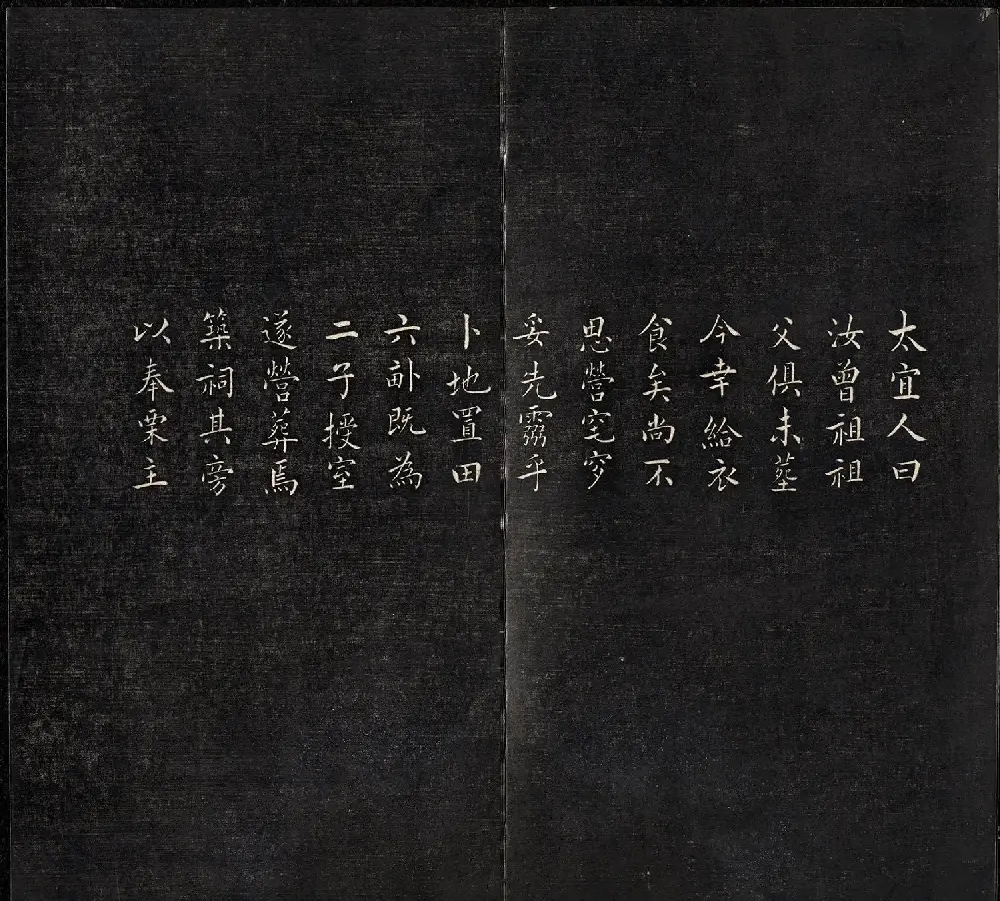 太宜人曰
汝曾祖祖
父俱未塟
今幸給衣
食矣尚不
思營窀穸
妥先靈乎
卜地置田
六畝既為
二子授室
遂營葬焉
築祠其旁
以奉栗主